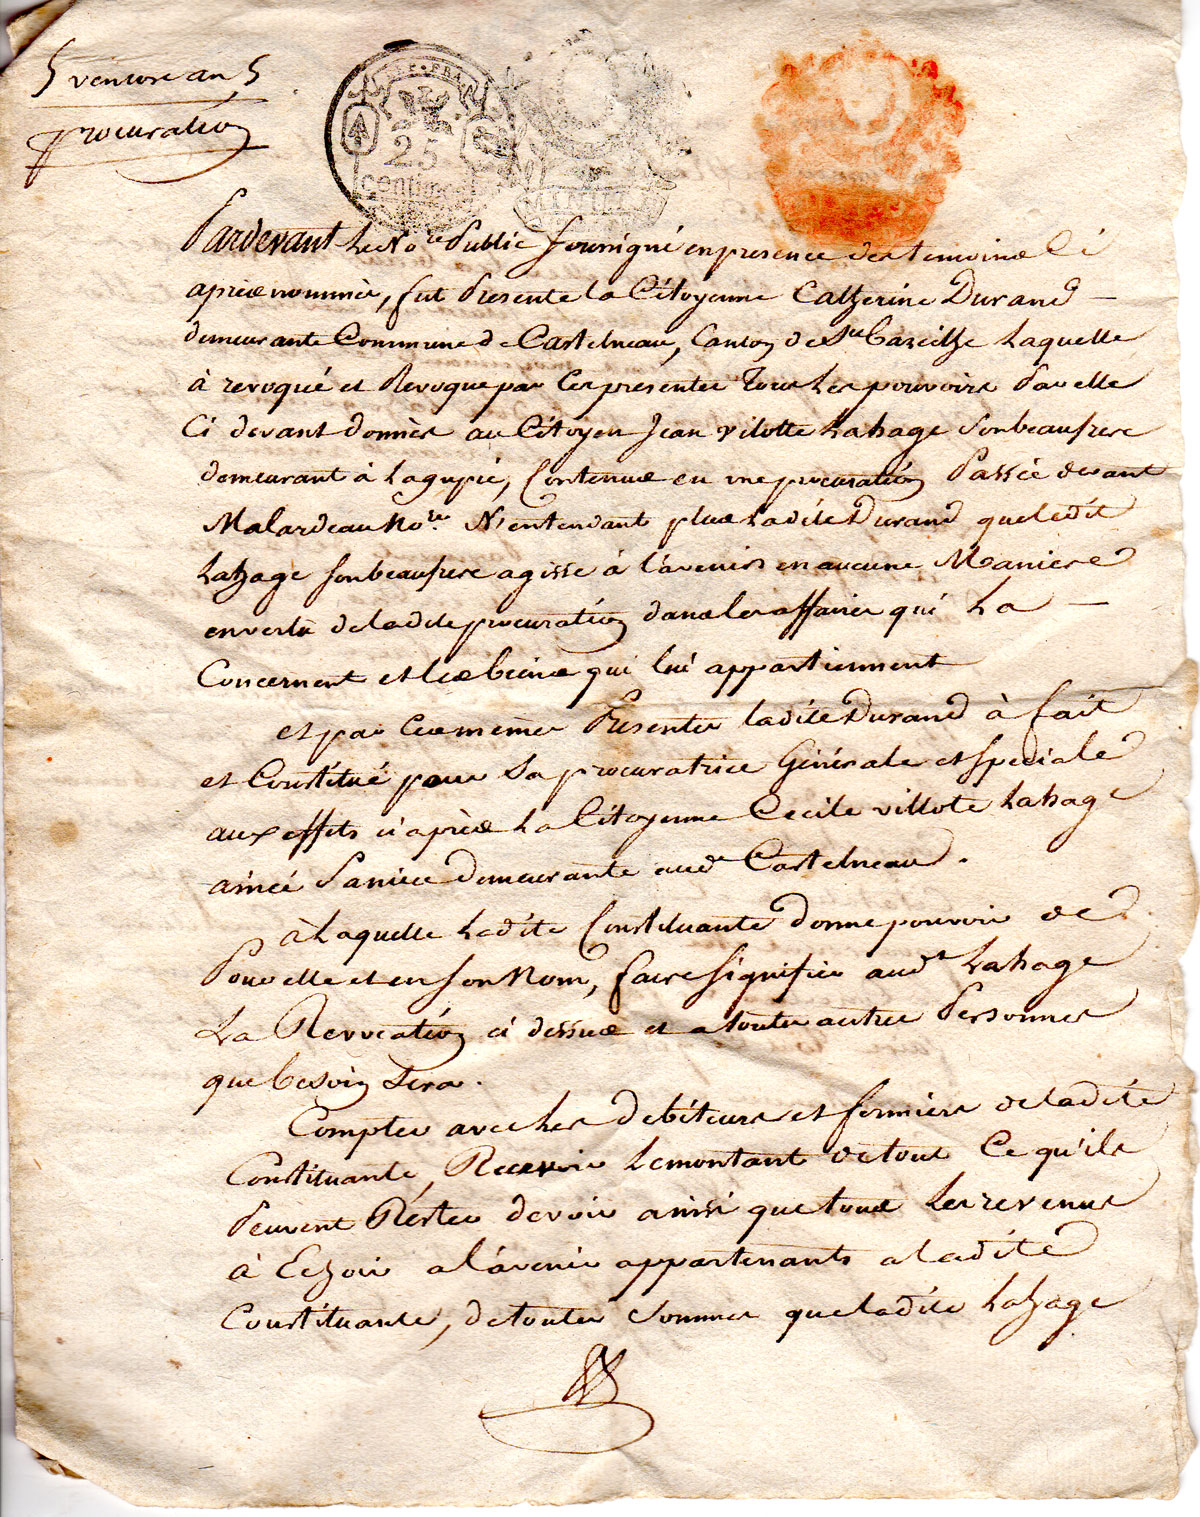 5 ventose an 5
procuration
REP. FRA
25
centimes
Pardevant Le No.re Public soussigné en presence des temoins Ci
après nommés, fut Presente la Citoyenne Catherine Durand
demeurante Commune de Castelneau, Canton de S.te Bazeille Laquelle
à revoqué et Revoque par Ces presentes Tous Les pouvoirs Par elle
Ci devant donnés au Citoyen Jean vilotte Lahage Son beaufrere
demeurant à Lagupié, Contenus en une procuration Passée devant
Malardeau No.re N'entendant plus Ladite Durand que Ledit
Lahage son beaufrere agisse à l'avenir en aucune Maniere
en vertu de ladite procuration dans les affaires qui La
Concernent et les biens qui lui appartiennent
et par Ces memes Presentes ladite Durand à fait
et Constitué pour Sa procuratrice Générale et speciale
aux effets ci après La Citoyenne Cecile villote Lahage
ainée Sa niece demeurante aud. Castelneau.
à Laquelle Ladite Constituante donne pouvoir de
Pour elle et en son Nom, faire signifier aud.t Lahage
La Revocation ci dessus et a toutes autres Personnes
que besoin sera.
Compter avec Les debiteurs et fermiers de ladite
Constituante, Recevoir Le montant de tout Ce qu'ils
Peuvent Rester devoir ainsi que tous Les revenus
à Echoir a l'avenir appartenants a ladite
Constituante, de toutes sommes que ladite Lahage